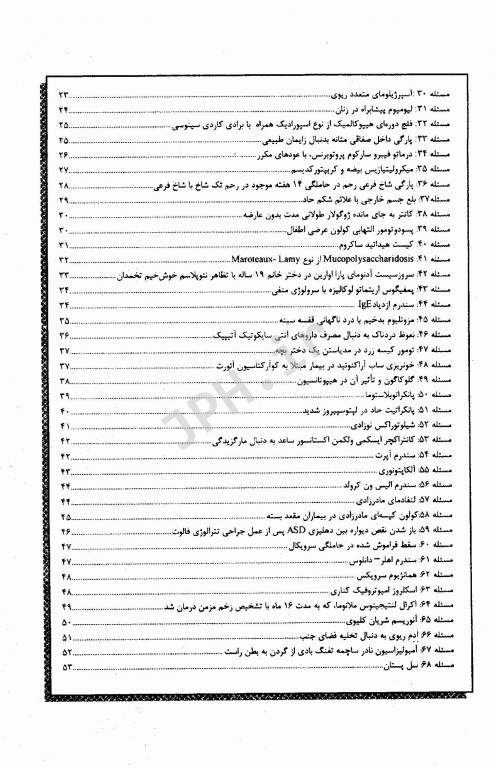 مسئله ۳۰: آسپرژیلومای متعدد ریوی............۲۳
مسئله ۳۱: لیومیوم پیشابراه در زنان............۲۴
مسئله ۳۲: فلج دوره‌ای هیپوکالمیک از نوع اسپورادیک همراه با برادی کاردی سینوسی............۲۵
مسئله ۳۳: پارگی داخل صفاقی مثانه بدنبال زایمان طبیعی............۲۵
مسئله ۳۴: درماتو فیبرو سارکوم پروتوبرنس، با عودهای مکرر............۲۶
مسئله ۳۵: میکرولیتیازیس بیضه و کریپتورکدیسم............۲۷
مسئله ۳۶: پارگی شاخ فرعی رحم در حاملگی ۱۴ هفته موجود در رحم تک شاخ با شاخ فرعی............۲۸
مسئله ۳۷: بلع جسم خارجی با علائم شکم حاد............۲۹
مسئله ۳۸: کاتتر به جای مانده ژوگولار طولانی مدت بدون عارضه............۳۰
مسئله ۳۹: پسودوتومور التهابی کولون عرضی اطفال............۳۰
مسئله ۴۰: کیست هیداتید ساکروم............۳۱
مسئله ۴۱: Mucopolysaccharidosis از نوع Maroteaux- Lamy............۳۲
مسئله ۴۲: سروزسیست آدنومای پارا اوارین در دختر خانم ۱۹ ساله با تظاهر نئوپلاسم خوش‌خیم تخمدان............۳۳
مسئله ۴۳: پمفیگوس اریتماتو لوکالیزه با سرولوژی منفی............۳۴
مسئله ۴۴: سندرم ازدیاد IgE............۳۴
مسئله ۴۵: مزوتلیوم بدخیم با درد ناگهانی قفسه سینه............۳۵
مسئله ۴۶: نعوظ دردناک به دنبال مصرف داروهای آنتی سایکوتیک آتیپیک............۳۶
مسئله ۴۷: تومور کیسه زرد در مدیاستن یک دختر بچه............۳۷
مسئله ۴۸: خونریزی ساب آراکنوئید در بیمار مبتلا به کوآرکتاسیون آئورت............۳۷
مسئله ۴۹: گلوکاگون و تأثیر آن در هیپوتانسیون............۳۸
مسئله ۵۰: پانکراتوبلاستوما............۳۹
مسئله ۵۱: پانکراتیت حاد در لپتوسپیروز شدید............۴۰
مسئله ۵۲: شیلوتوراکس نوزادی............۴۱
مسئله ۵۳: کانتراکچر ایسکمی ولکمن اکستانسور ساعد به دنبال مارگزیدگی............۴۲
مسئله ۵۴: سندرم آپرت............۴۲
مسئله ۵۵: آلکاپتونوری............۴۳
مسئله ۵۶: سندرم الیس ون کرولد............۴۴
مسئله ۵۷: لنفادمای مادرزادی............۴۴
مسئله ۵۸: کولون کیسه‌ای مادرزادی در بیماران مقعد بسته............۴۵
مسئله ۵۹: باز شدن نقص دیواره بین دهلیزی ASD پس از عمل جراحی تترالوژی فالوت............۴۶
مسئله ۶۰: سقط فراموش شده در حاملگی سرویکال............۴۷
مسئله ۶۱: سندرم اهلر- دانلوس............۴۷
مسئله ۶۲: همانژیوم سرویکس............۴۸
مسئله ۶۳: اسکلروز آمیوتروفیک کناری............۴۸
مسئله ۶۴: آکرال لنتیجینوس ملانوما، که به مدت ۱۶ ماه با تشخیص زخم مزمن درمان شد............۴۹
مسئله ۶۵: آنوریسم شریان کلیوی............۵۰
مسئله ۶۶: ادم ریوی به دنبال تخلیه فضای جنب............۵۱
مسئله ۶۷: آمبولیزاسیون نادر ساچمه تفنگ بادی از گردن به بطن راست............۵۲
مسئله ۶۸: سل پستان............۵۳
JPH.ir